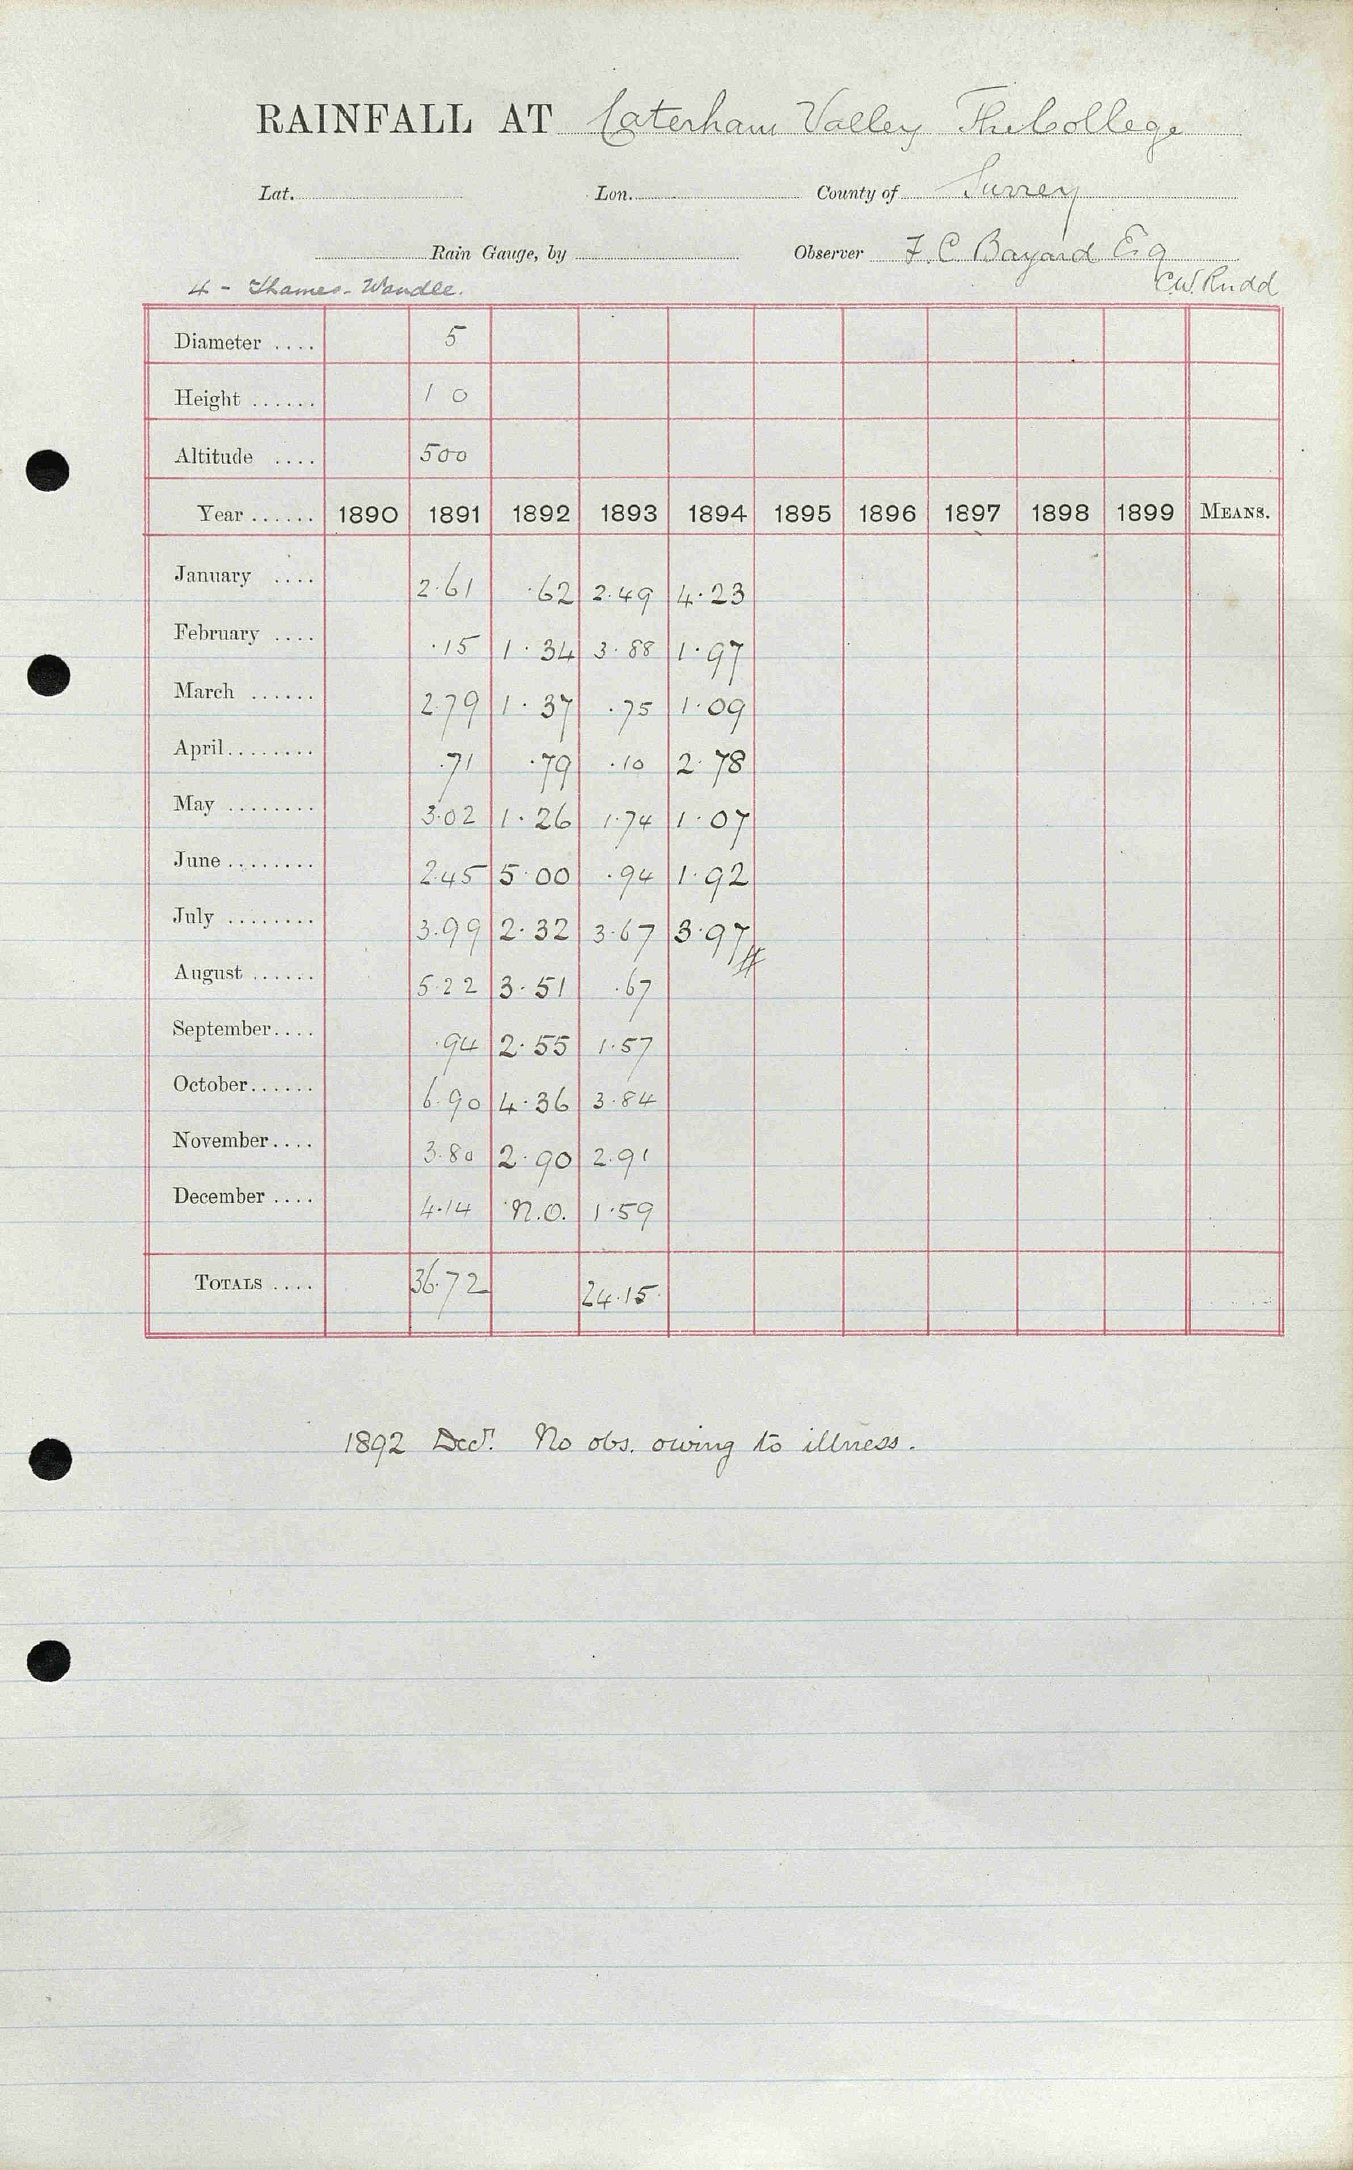 RAINFALL AT Caterham Valley The College
Lat. Lon. County of Surrey
Rain Gauge, by Observer F. C. Bayard Esq
4 - Thames - Wandle. C.W. Rudd
Diameter .... 5
Height ...... 1 0
Altitude .... 500
Year ...... 1890 1891 1892 1893 1894 1895 1896 1897 1898 1899 MEANS.
January .... 2.61 .62 2.49 4.23
February .... .15 1.34 3.88 1.97
March ...... 2.79 1.37 .75 1.09
April........ .71 .79 .10 2.78
May ........ 3.02 1.26 1.74 1.07
June ........ 2.45 5.00 .94 1.92
July ........ 3.99 2.32 3.67 3.97
August ...... 5.22 3.51 .67
September.... .94 2.55 1.57
October...... 6.90 4.36 3.84
November.... 3.80 2.90 2.91
December .... 4.14 N.O. 1.59
TOTALS .... 36.72 24.15
1892 Decr. No obs. owing to illness.